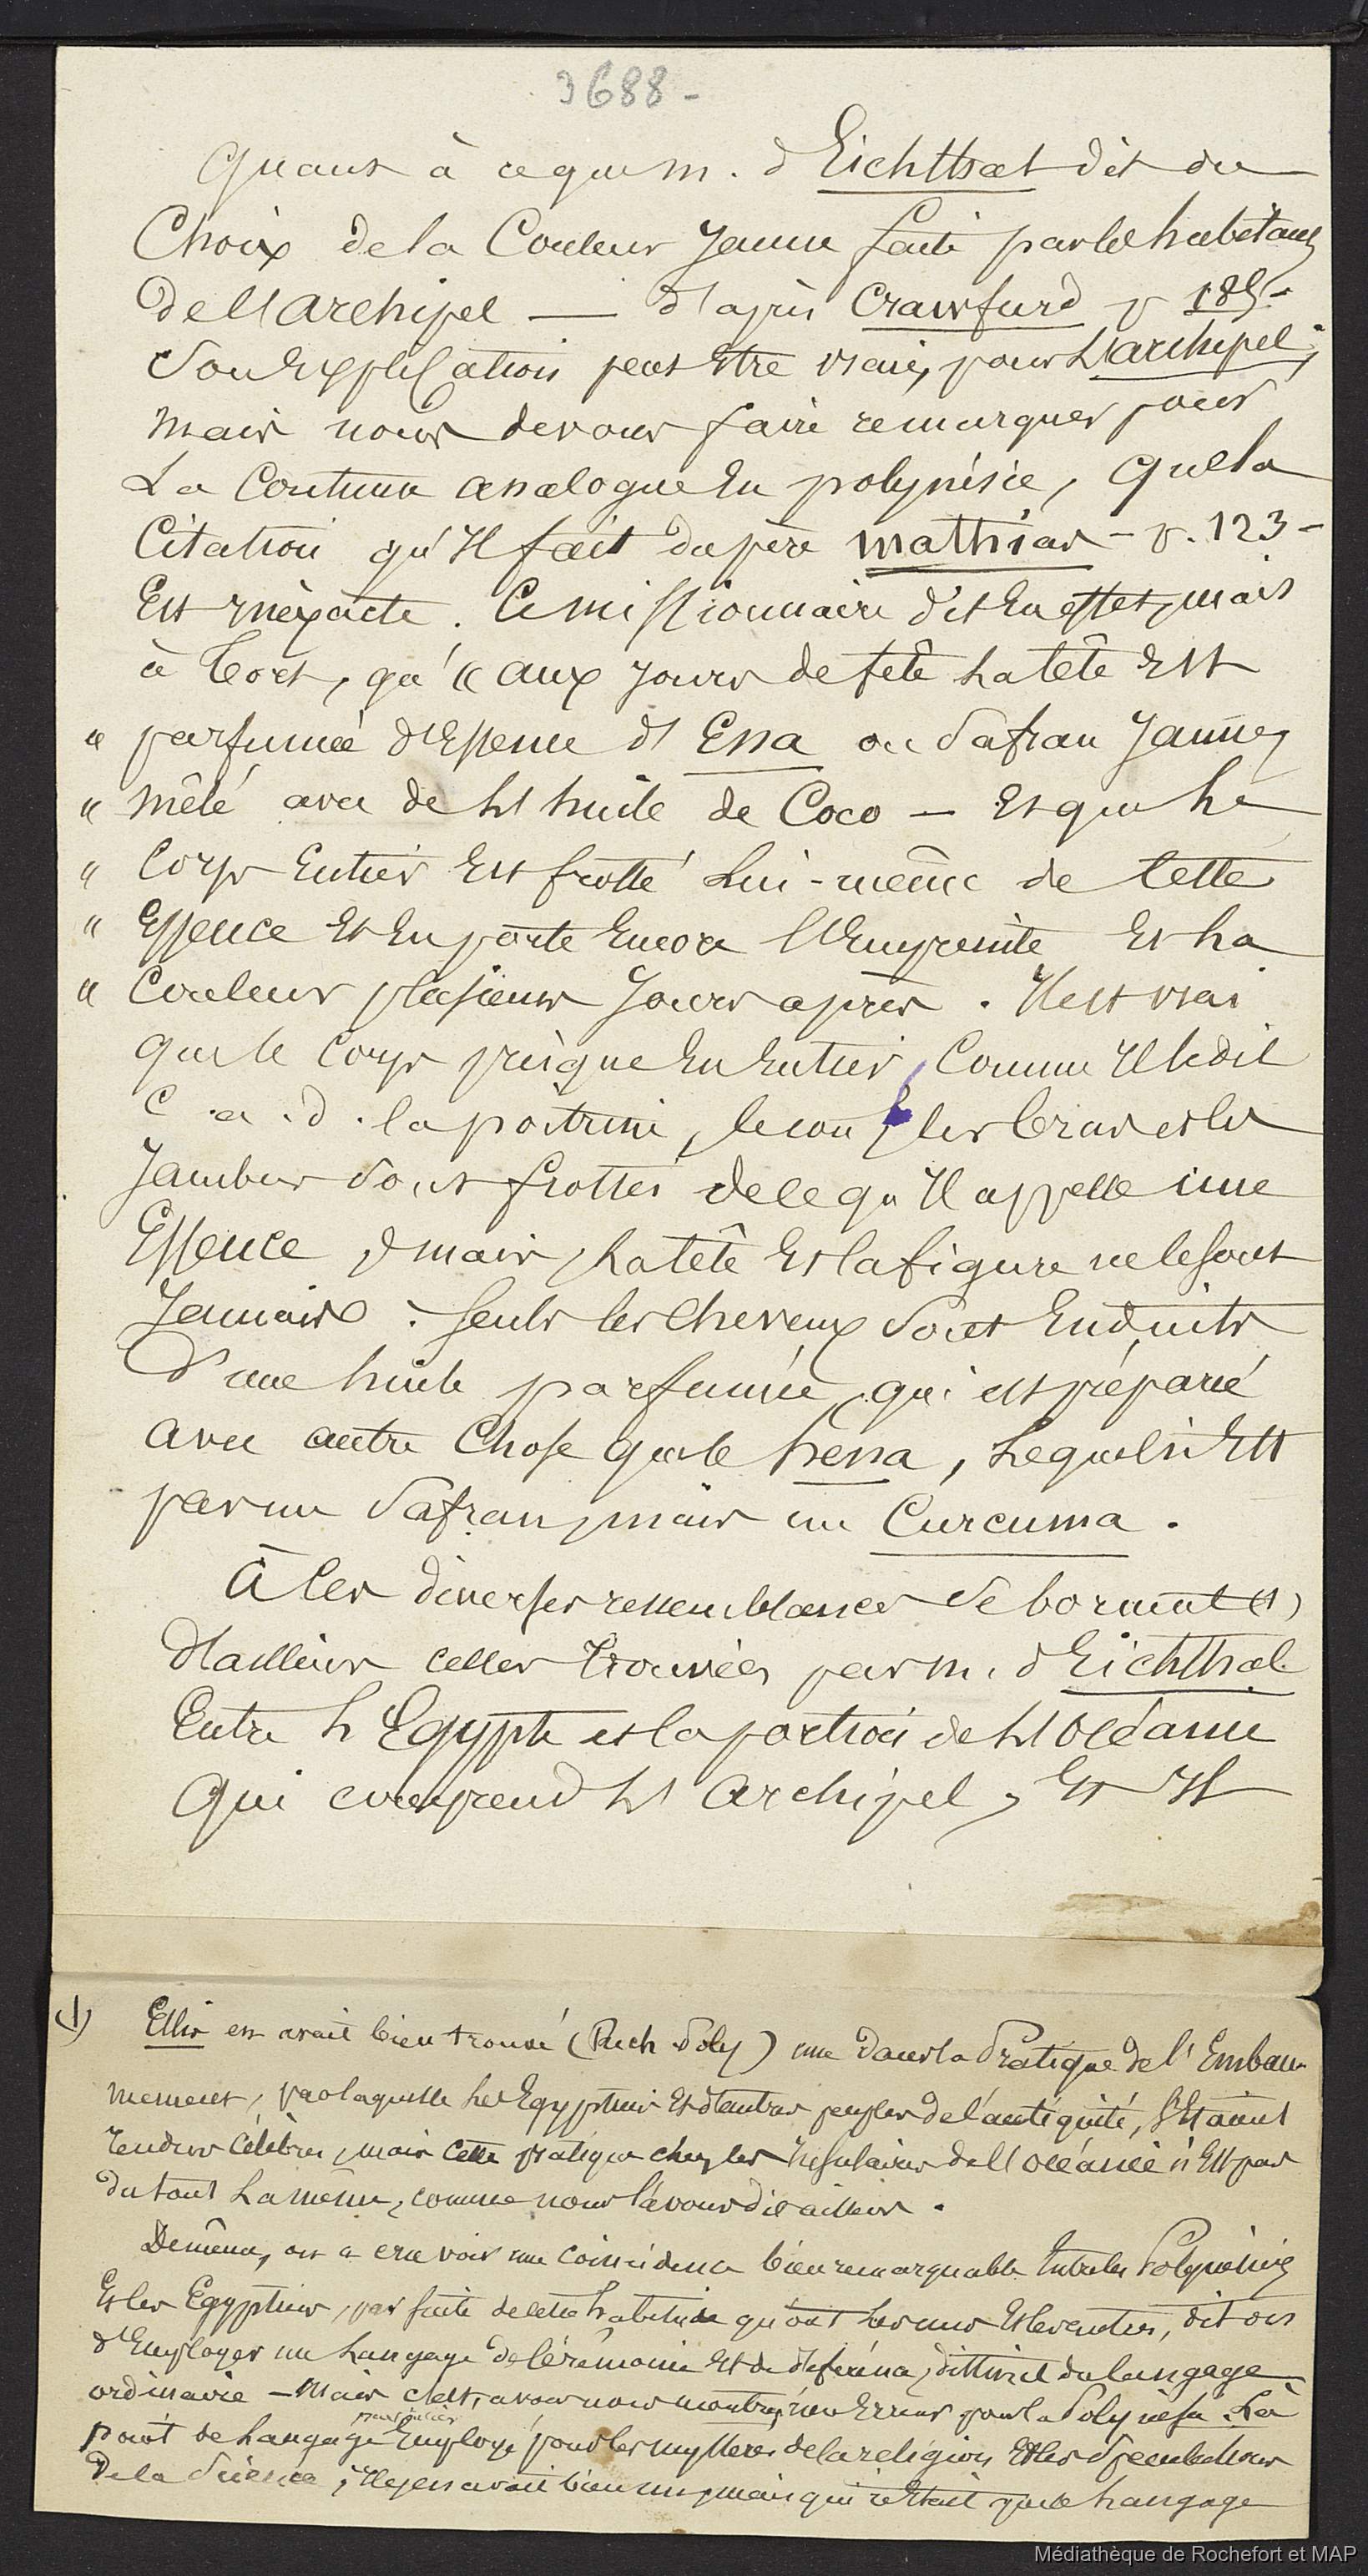 3688 -
Quant à ce que m. d'Eichthal dit du
Choix de la Couleur Jaune faite par les habitans
de l'archipel — d'après Crawfurd p 185 -
Son Explication peut Etre vraie, pour L'archipel;
mais nous devons faire remarquer pour
La Coutume analogue En polynésie, que la
Citation qu'Il fait du père mathias - p. 123 -
Est Inéxacte. Ce missionnaire dit En effet, mais
à tort, qu' « aux Jours de fête La tête Est
" parfumée d'Essence d'Ena ou Safran Jaune,
" mêlé avec de L'huile de Coco — Et que Le
" Corps Entier Est frotté Lui-même de Cette
" Essence Et En porte Encore l'Empreinte Et La
" Couleur plusieurs Jours après. Il est vrai
que le Corps presque En Entier, Comme Il le dit
C. a. d. la poitrine, le cou, les bras et les
Jambes sont frottés de ce qu'Il appelle une
Essence, mais La tête Et la figure ne le sont
Jamais. Seuls les Cheveux sont Enduits
D'une huile parfumée, qui est préparé
avec autre Chose que le hena, Lequel n'Est
pas un Safran, mais un Curcuma.
à Ces diverses ressemblances se bornent (1)
d'ailleurs celles trouvées par m. d'Eichthal
Entre L'Egypte et la portion de L'Océanie
qui comprend L'Archipel, Et Il
(1) Ellis en avait bien trouvé (Rech Poly) une dans la Pratique de l'Embau-
mement, par laquelle Les Egyptiens Et d'autres peuples de l'antiquité, S'Etaient
rendus Célèbres, mais Cette pratique chez les Insulaires de l'océanie n'Est pas
du tout La même, comme nous l'avons dit ailleurs.
De même, on a cru voir une Coincidence bien remarquable Entre les Polynésiens
Et les Egyptiens, par suite de cette habitude qu'ont Les uns Et les autres, dit on
d'Employer un Langage de Cérémonie Et de déférence, distinct du langage
ordinaire — Mais c'est, avons nous montré, une Erreur pour la Polynésie. Là
particulier
point de Langage Employé pour les mysteres de la religion Et les Speculations
De la Science; Il y en avait bien un, mais qui n'Etait que le Langage
Médiathèque de Rochefort et MAP